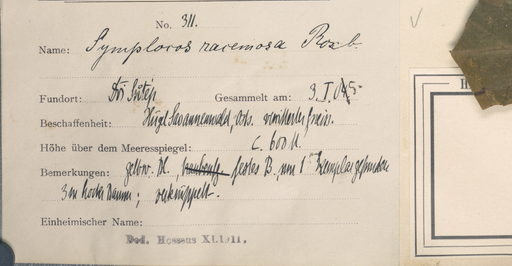 No. 311.
Name: Symplocos racemosa Roxb.
Fundort: Doi Sútep Gesammelt am: 3. I. 05
Beschaffenheit: Hügl. Savannenwald, verwitterter Gneis.
Höhe über dem Meeresspiegel: c. 600 M.
Bemerkungen: gelbw. Bl., festes B., nur 1 Exemplar gefunden
3 m hoher Baum; verkrüppelt.
Einheimischer Name:
Ded. Hosseus XI.1911.
H